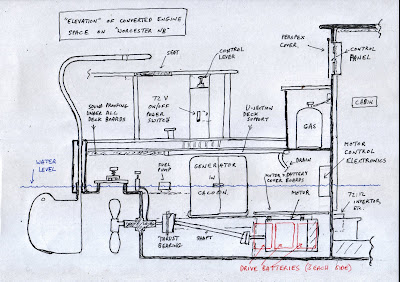 "ELEVATION" OF CONVERTED ENGINE
SPACE ON "WORCESTER NB"
PERSPEX
COVER
SEAT
CONTROL
LEVER
CONTROL
PANEL
SOUND PROOFING
UNDER ALL
DECK BOARDS
72 V
ON/OFF
POWER
SWITCH
U-SECTION
DECK
SUPPORT
CABIN
GAS
WATER
LEVEL
FUEL
PUMP
GENERATOR
IN
COCOON
DRAIN
MOTOR
CONTROL
ELECTRONICS
MOTOR & BATTERY
COVER BOARDS
MOTOR
72:12
INVERTOR,
ETC.
THRUST
BEARING
SHAFT
DRIVE BATTERIES (3 EACH SIDE)